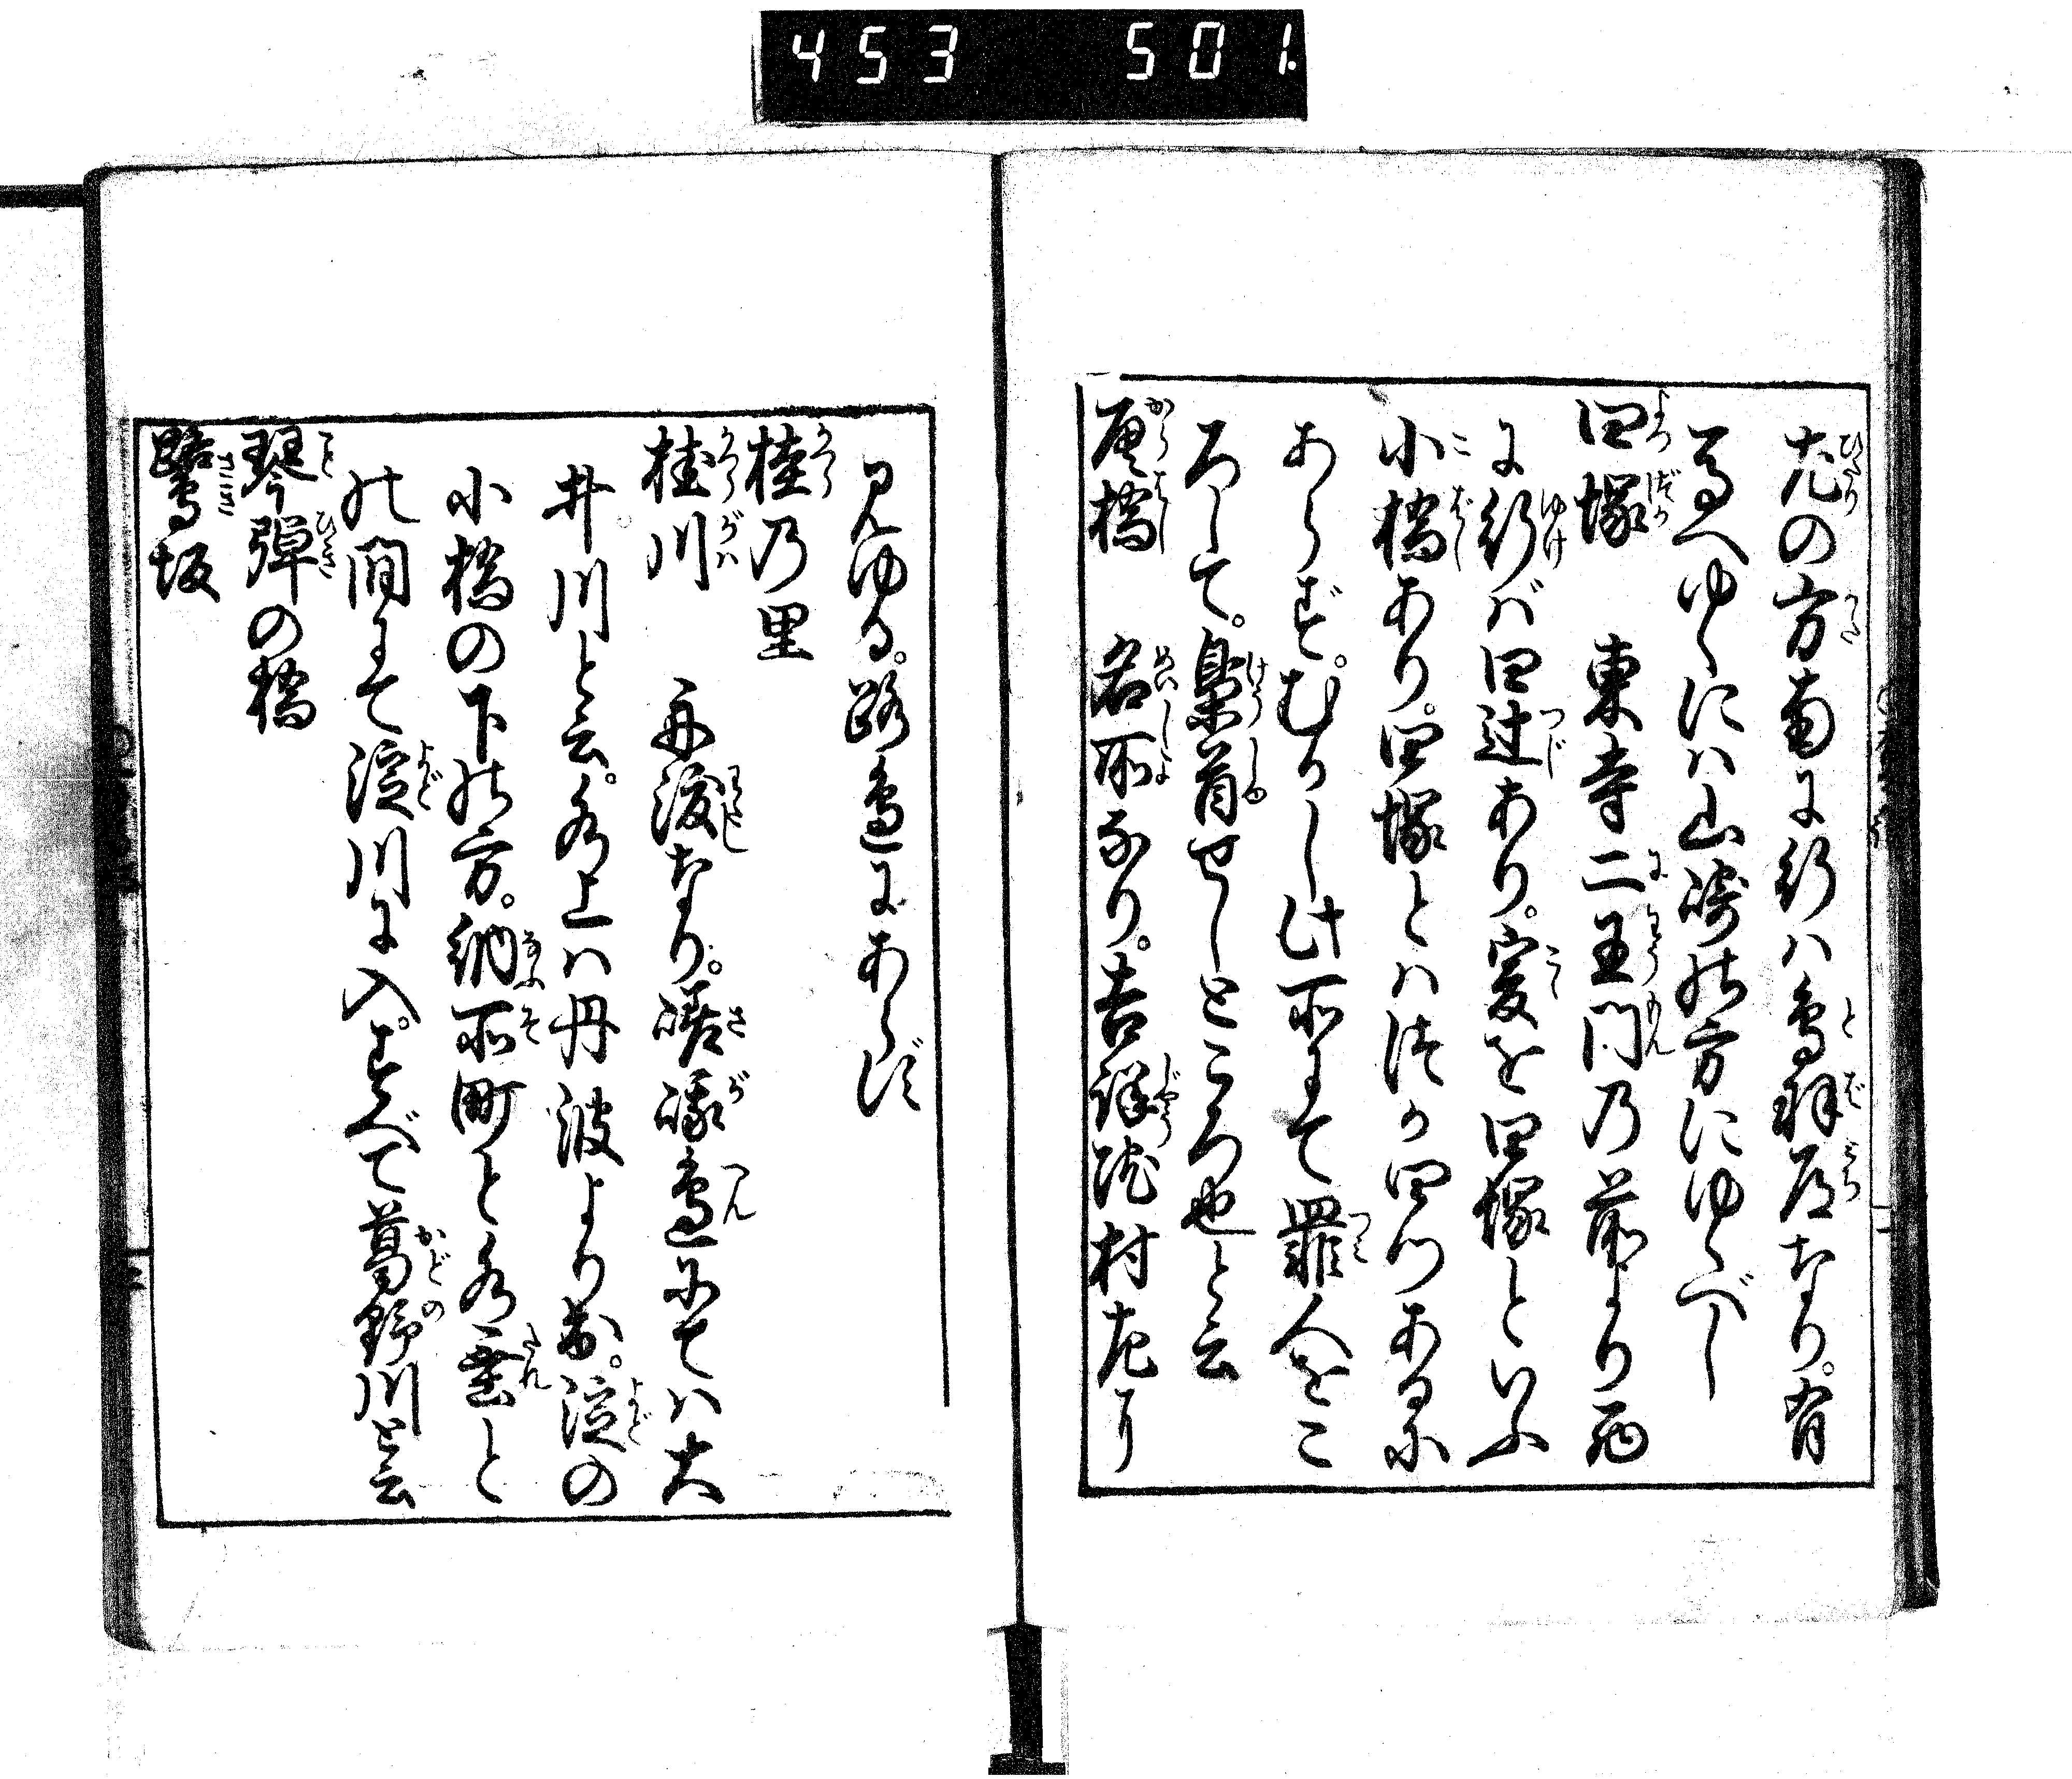 453 501.
左の方南に行ハ鳥羽道なり。右
馬へゆくにハ山崎の方にゆくべし
四塚 東寺二王門乃前より西
に行バ四辻あり。爰を四塚といふ
小橋あり。四塚とハつか四つあるに
あらず。むかし此所にて罪人をこ
ろして。梟首せしところ也と云
唐橋 名所なり。吉祥院村左り
見ゆる。路邊にあらず
桂乃里
桂川 舟渡なり。嵯峨邊にてハ大
井川と云。水上ハ丹波より出。淀の
小橋の下の方。納所町と水垂と
の間にて淀川に入。すべて葛野川と云
琴弾の橋
鷺坂